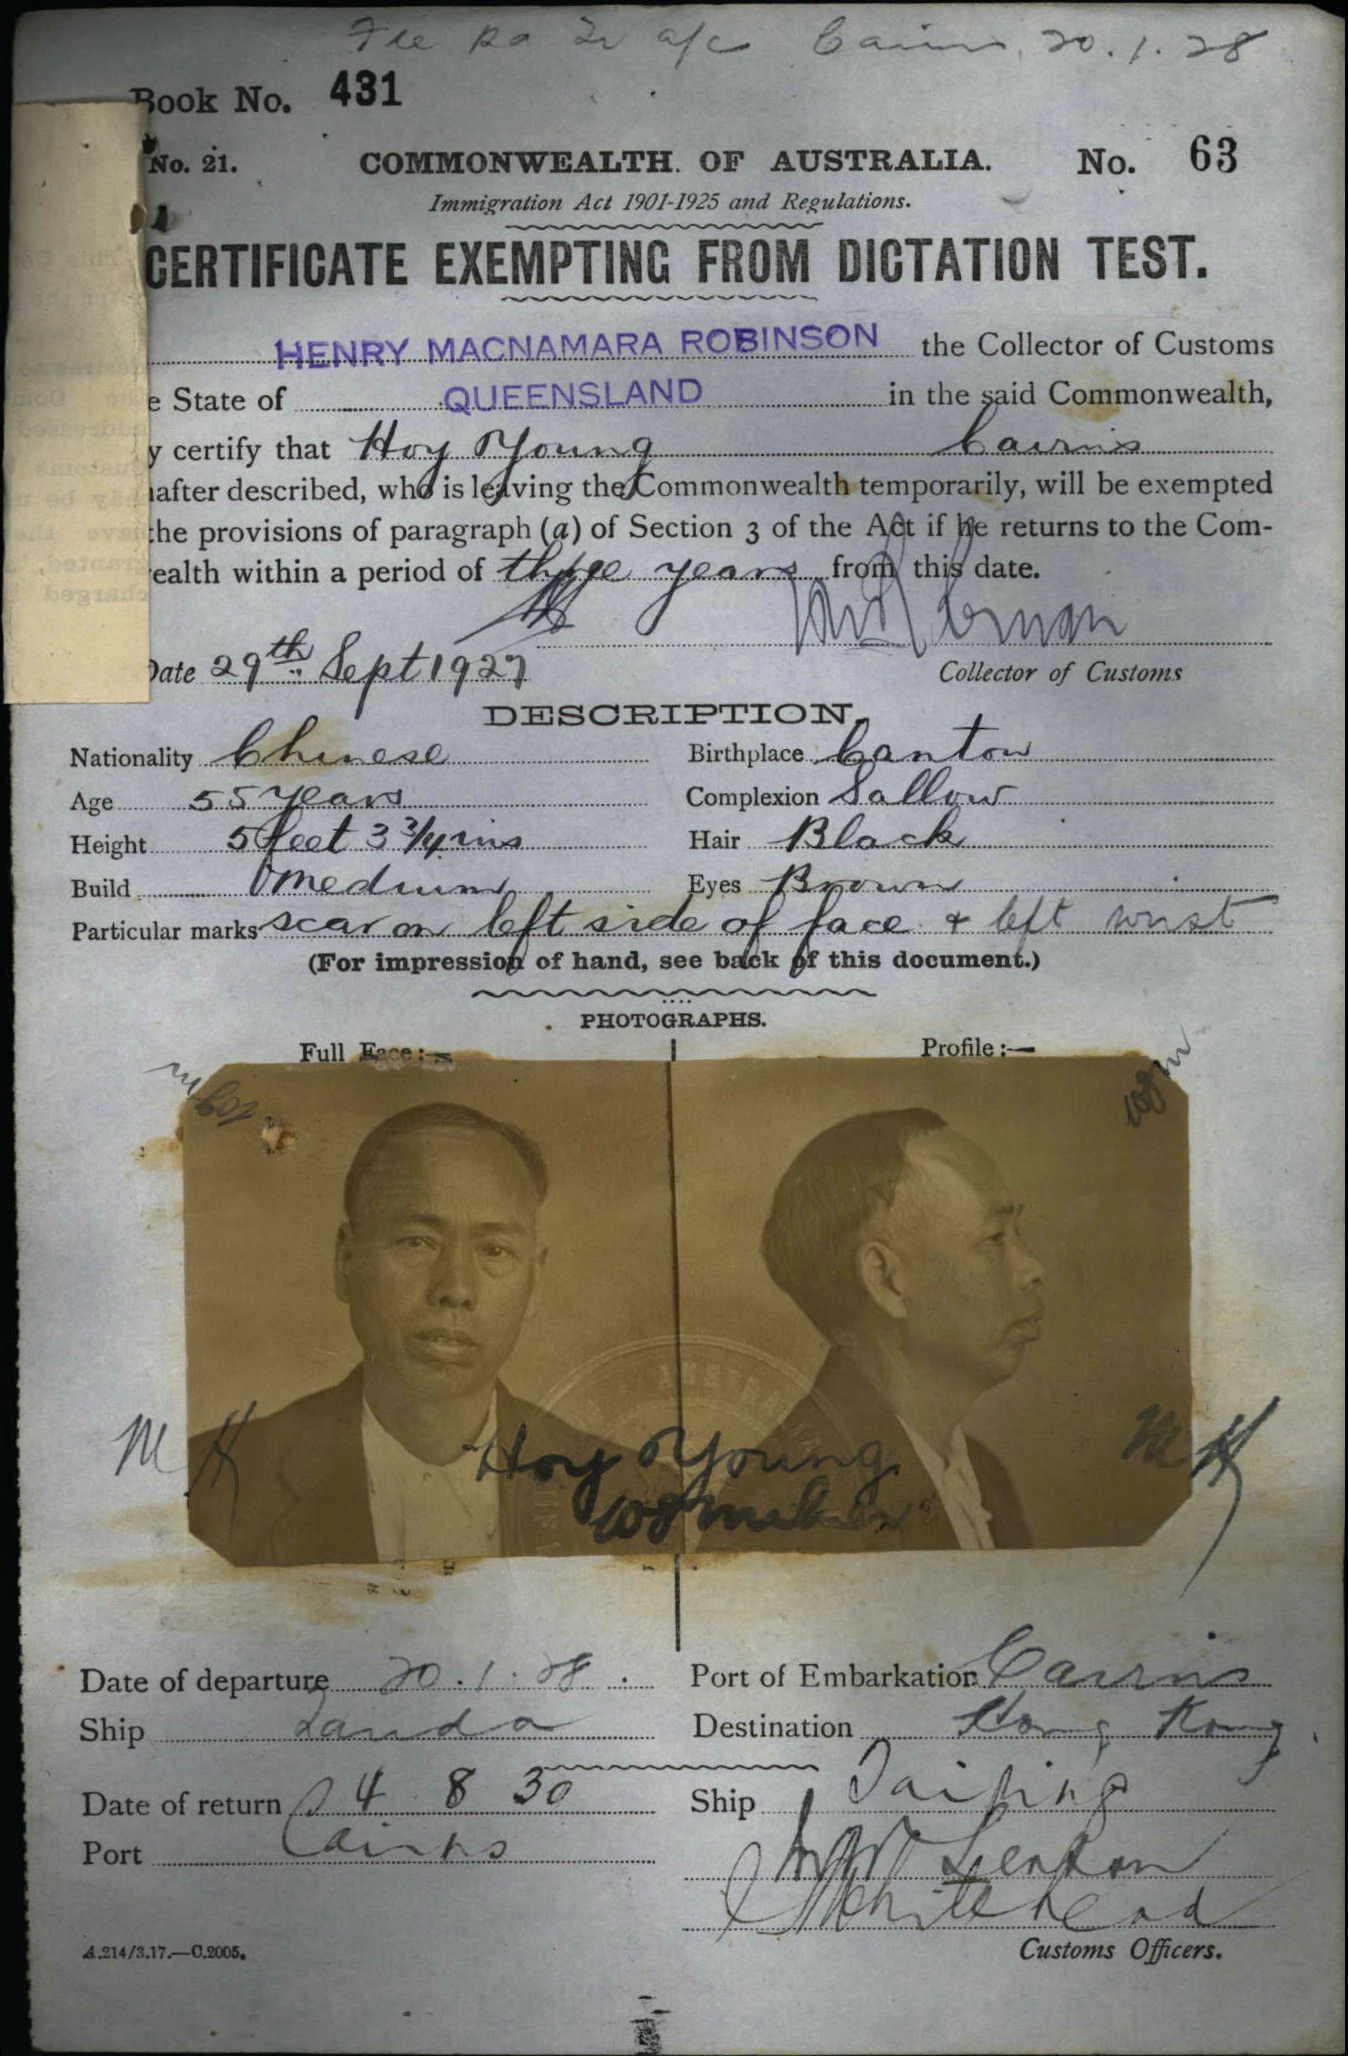 Cairns, 20.1.28
Book No. 431
No. 21. COMMONWEALTH OF AUSTRALIA. No. 63
Immigration Act 1901-1925 and Regulations.
CERTIFICATE EXEMPTING FROM DICTATION TEST.
HENRY MACNAMARA ROBINSON the Collector of Customs
e State of QUEENSLAND in the said Commonwealth,
y certify that Hoy Young Cairns
after described, who is leaving the Commonwealth temporarily, will be exempted
the provisions of paragraph (a) of Section 3 of the Act if he returns to the Com-
ealth within a period of three years from this date.
Date 29th Sept 1927
Collector of Customs
DESCRIPTION.
Nationality Chinese Birthplace Canton
Age 55 years Complexion Sallow
Height 5 feet 3 3/4 ins Hair Black
Build medium Eyes Brown
Particular marks scar on left side of face & left wrist
(For impression of hand, see back of this document.)
PHOTOGRAPHS.
Full Face:— Profile:—
Hoy Young
Date of departure 20.1.28. Port of Embarkation Cairns
Ship Tanda Destination Hong Kong
Date of return 4 8 30 Ship Taiping
Port Cairns
Whitehead
A.214/3.17.—C.2005. Customs Officers.